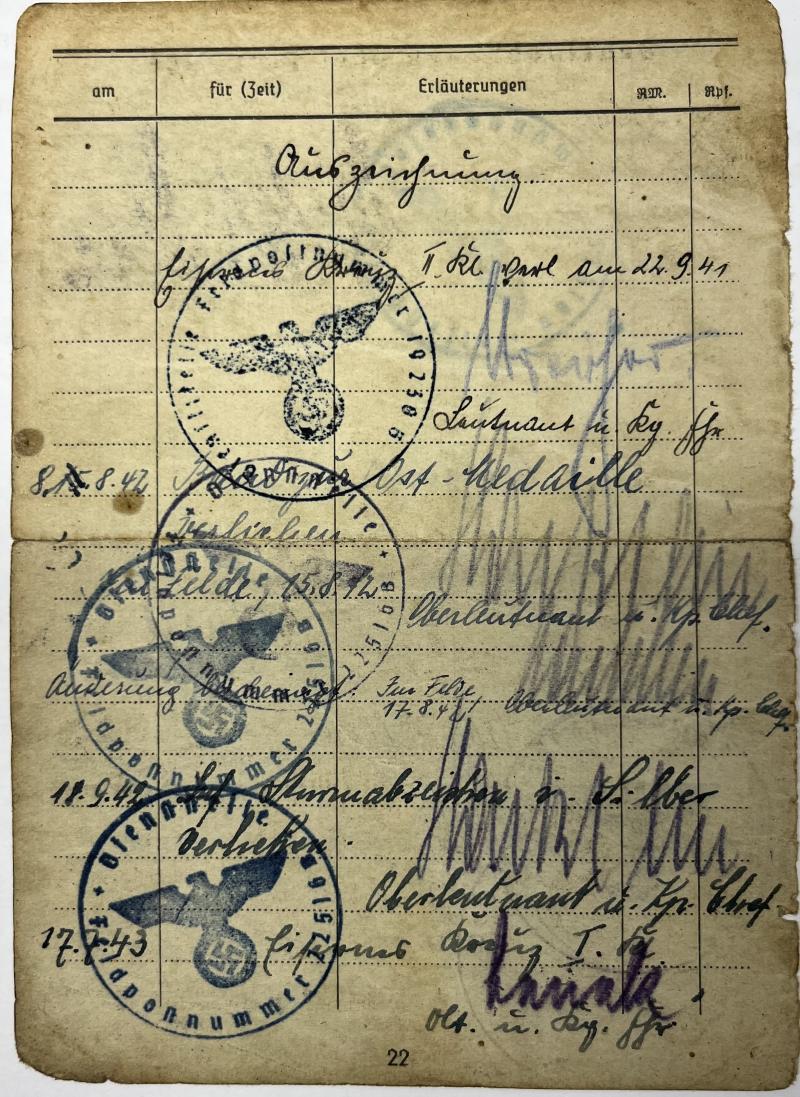 am für (Zeit) Erläuterungen RM. Rpf.
Auszeichnung
Eisernes Kreuz II. Kl. verl am 22.9.41
Leutnant u. Kp. Fhr
8.8.42 Ost-Medaille
Verliehen
Im Felde, 15.8.42
Oberleutnant u. Kp. Chef.
Dienststelle Feldpostnummer
Änderung Im Felde
17.8.42 Oberleutnant u. Kp. Chef
18.9.42 Inf Sturmabzeichen i. Silber
Verliehen.
Oberleutnant u. Kp. Chef
Dienststelle Feldpostnummer 22516B
17.7.43 Eisernes Kreuz I. Kl.
Olt. u. Kp. Fhr
22